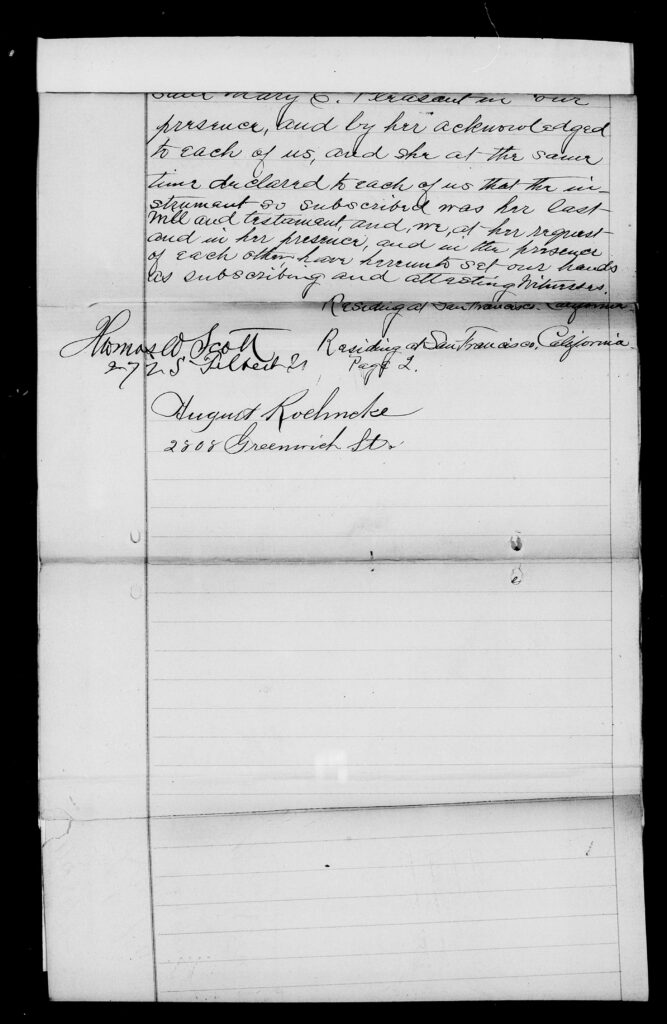 said Mary E. Pleasant in our
presence, and by her acknowledged
to each of us, and she at the same
time declared to each of us that the in-
strument so subscribed was her last
Will and testament, and, we, at her request
and in her presence, and in the presence
of each other, have hereunto set our hands
as subscribing and attesting Witnesses.
Residing at San Francisco. California.
Thomas W. Scott Residing at San Francisco, California.
2725 Filbert St Page 2.
August Roehncke
2808 Greenwich St.